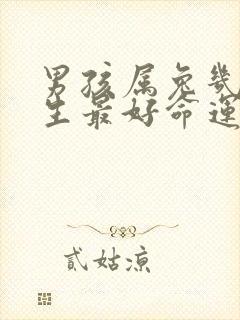 男孩属兔几
生最好命运
貳姑凉